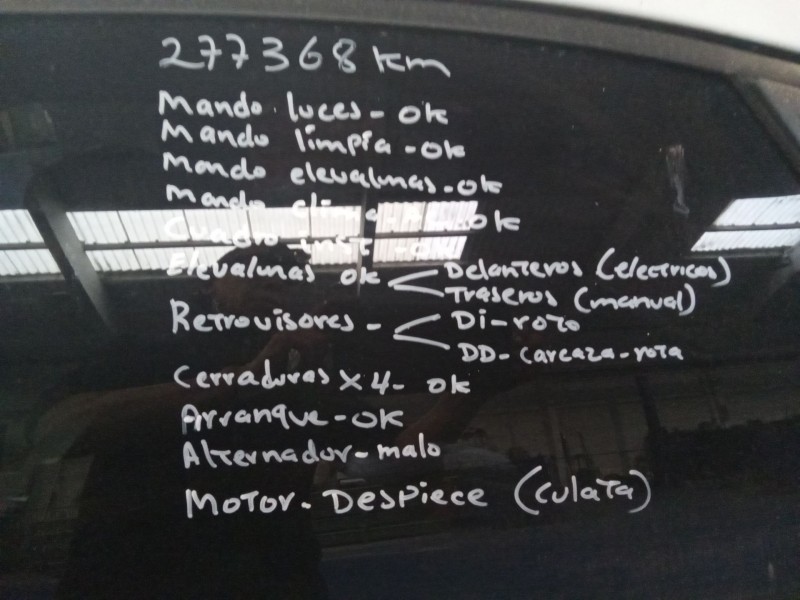 277368 km
Mando luces - ok
Mando limpia - ok
Mando elevalunas - ok
Mando clima - ok
Cuadro inst - ok
Elevalunas ok < Delanteros (electricos)
Traseros (manual)
Retrovisores - < DI - roto
DD - carcaza - rota
Cerraduras x 4 - ok
Arranque - OK
Alternador - malo
MOTOR - Despiece (culata)